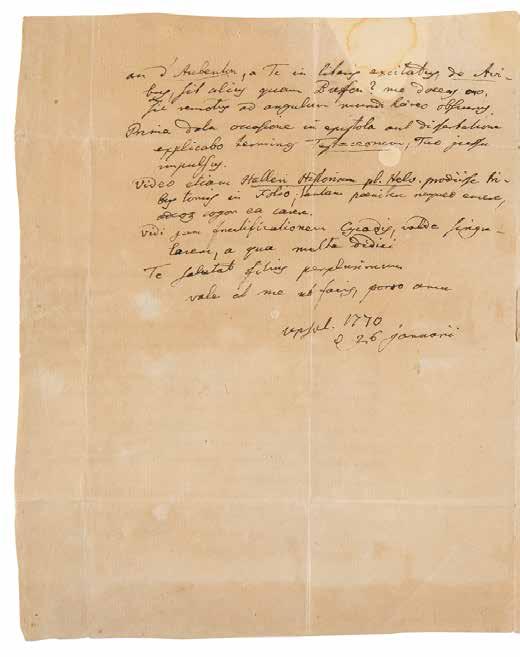 an d'Aubenton, a Te in literis excitatus, de Avi-
bus, sit alius quam Buffon? me doceas oro,
sic remotus ad angulum mundi haereo obscurus.
Prima data occasione in epistola aut dissertatione
explicabo terminos Testaceorum, Tuo jussu
impulsus.
Video etiam Halleri Historiam pl. Helv. prodiisse tri-
bus tomis in Folio, tantam nequeo emere,
cogor ea carere.
Vidi jam fructificationem Cycadis, valde singu-
larem, a qua multa didici
Te salutat filius perplurimum
vale et me ut facis, porro ama
Upsal. 1770
d 26 januarii